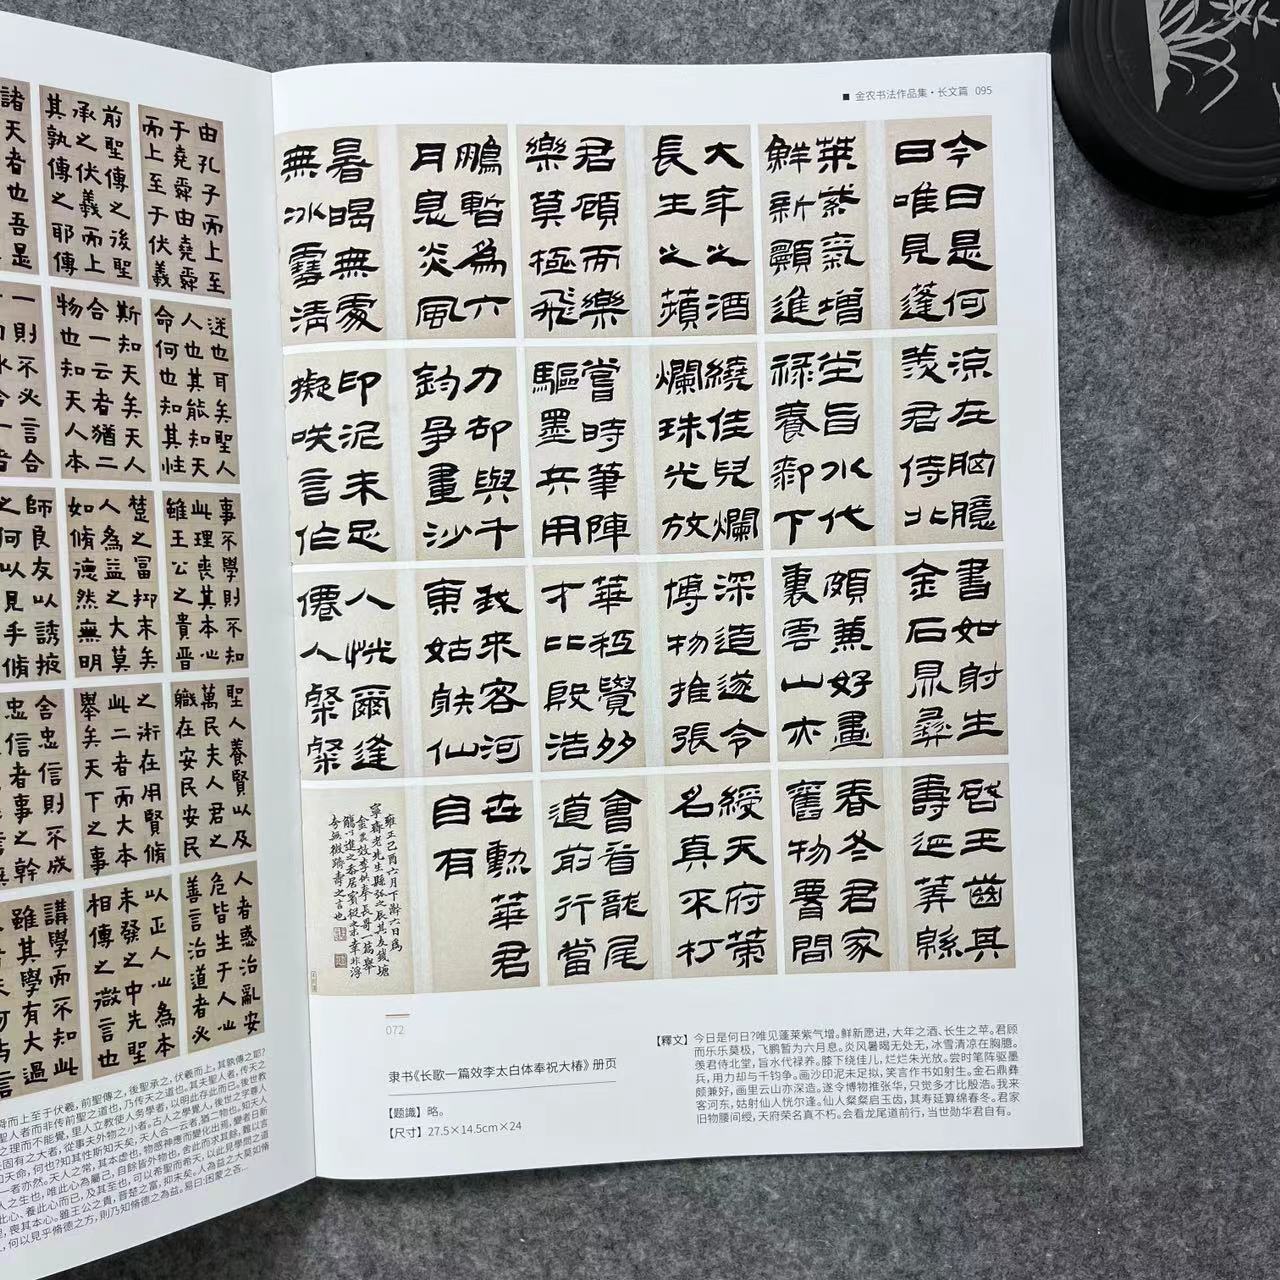 金农书法作品集·长文篇 095
今日是何
日唯見蓬
萊紫氣增
鮮新願進
大年之酒
長生之蘋
君顧而樂
樂莫極飛
鵬暫為六
月息炎風
暑暍無處
無冰雪清
涼在胸臆
羨君侍北
堂旨水代
祿養膝下
繞佳兒爛
爛珠光放
嘗時筆陣
驅墨兵用
力却與千
鈞爭畫沙
印泥未足
擬咲言作
書如射生
金石鼎彝
頗兼好畫
裏雲山亦
深造遂令
博物推張
華秪覺多
才比殷浩
我來客河
東姑射仙
人恍爾逢
僊人粲粲
啓玉齒其
壽延算緜
春冬君家
舊物要間
綬天府榮
名真不朽
會看龍尾
道前行當
世勳華君
自有
雍正己酉六月下澣六日為
072
隶书《长歌一篇效李太白体奉祝大椿》册页
【题識】略。
【尺寸】27.5×14.5cm×24
【釋文】今日是何日？唯见蓬莱紫气增。鲜新愿进，大年之酒、长生之苹。君顾
而乐乐莫极，飞鹏暂为六月息。炎风暑暍无处无，冰雪清凉在胸臆。
羡君侍北堂，旨水代禄养。膝下绕佳儿，烂烂朱光放。尝时笔阵驱墨
兵，用力却与千钧争。画沙印泥未足拟，笑言作书如射生。金石鼎彝
颇兼好，画里云山亦深造。遂令博物推张华，只觉多才比殷浩。我来
客河东，姑射仙人恍尔逢。仙人粲粲启玉齿，其寿延算绵春冬。君家
旧物腰间绶，天府荣名真不朽。会看龙尾道前行，当世勋华君自有。
由孔子而上至
于堯舜由堯舜
而上至于伏羲
前聖傳之後聖
承之伏羲而上
其孰傳之耶傳
諸天者也吾是
迷也耳矣聖人
人也其能知天
命何也知其性
斯知天矣天人
合一云者猶二
物也知天人本
一則不必言合
事不學則不知
此理喪其本心
雖王公之貴晉
楚之富抑末矣
人為益之大莫
如脩德然無明
師良友以誘掖
之何以見乎脩
聖人養賢以及
萬民夫人君之
職在安民安民
之術在用賢脩
此二者而大本
舉矣天下之事
舍忠信則不成
忠信者事之幹
人者惑治亂安
危皆生于人心
善言治道者必
以正人心為本
未發之中先聖
相傳之微言也
講學而不知此
雖其學有大過